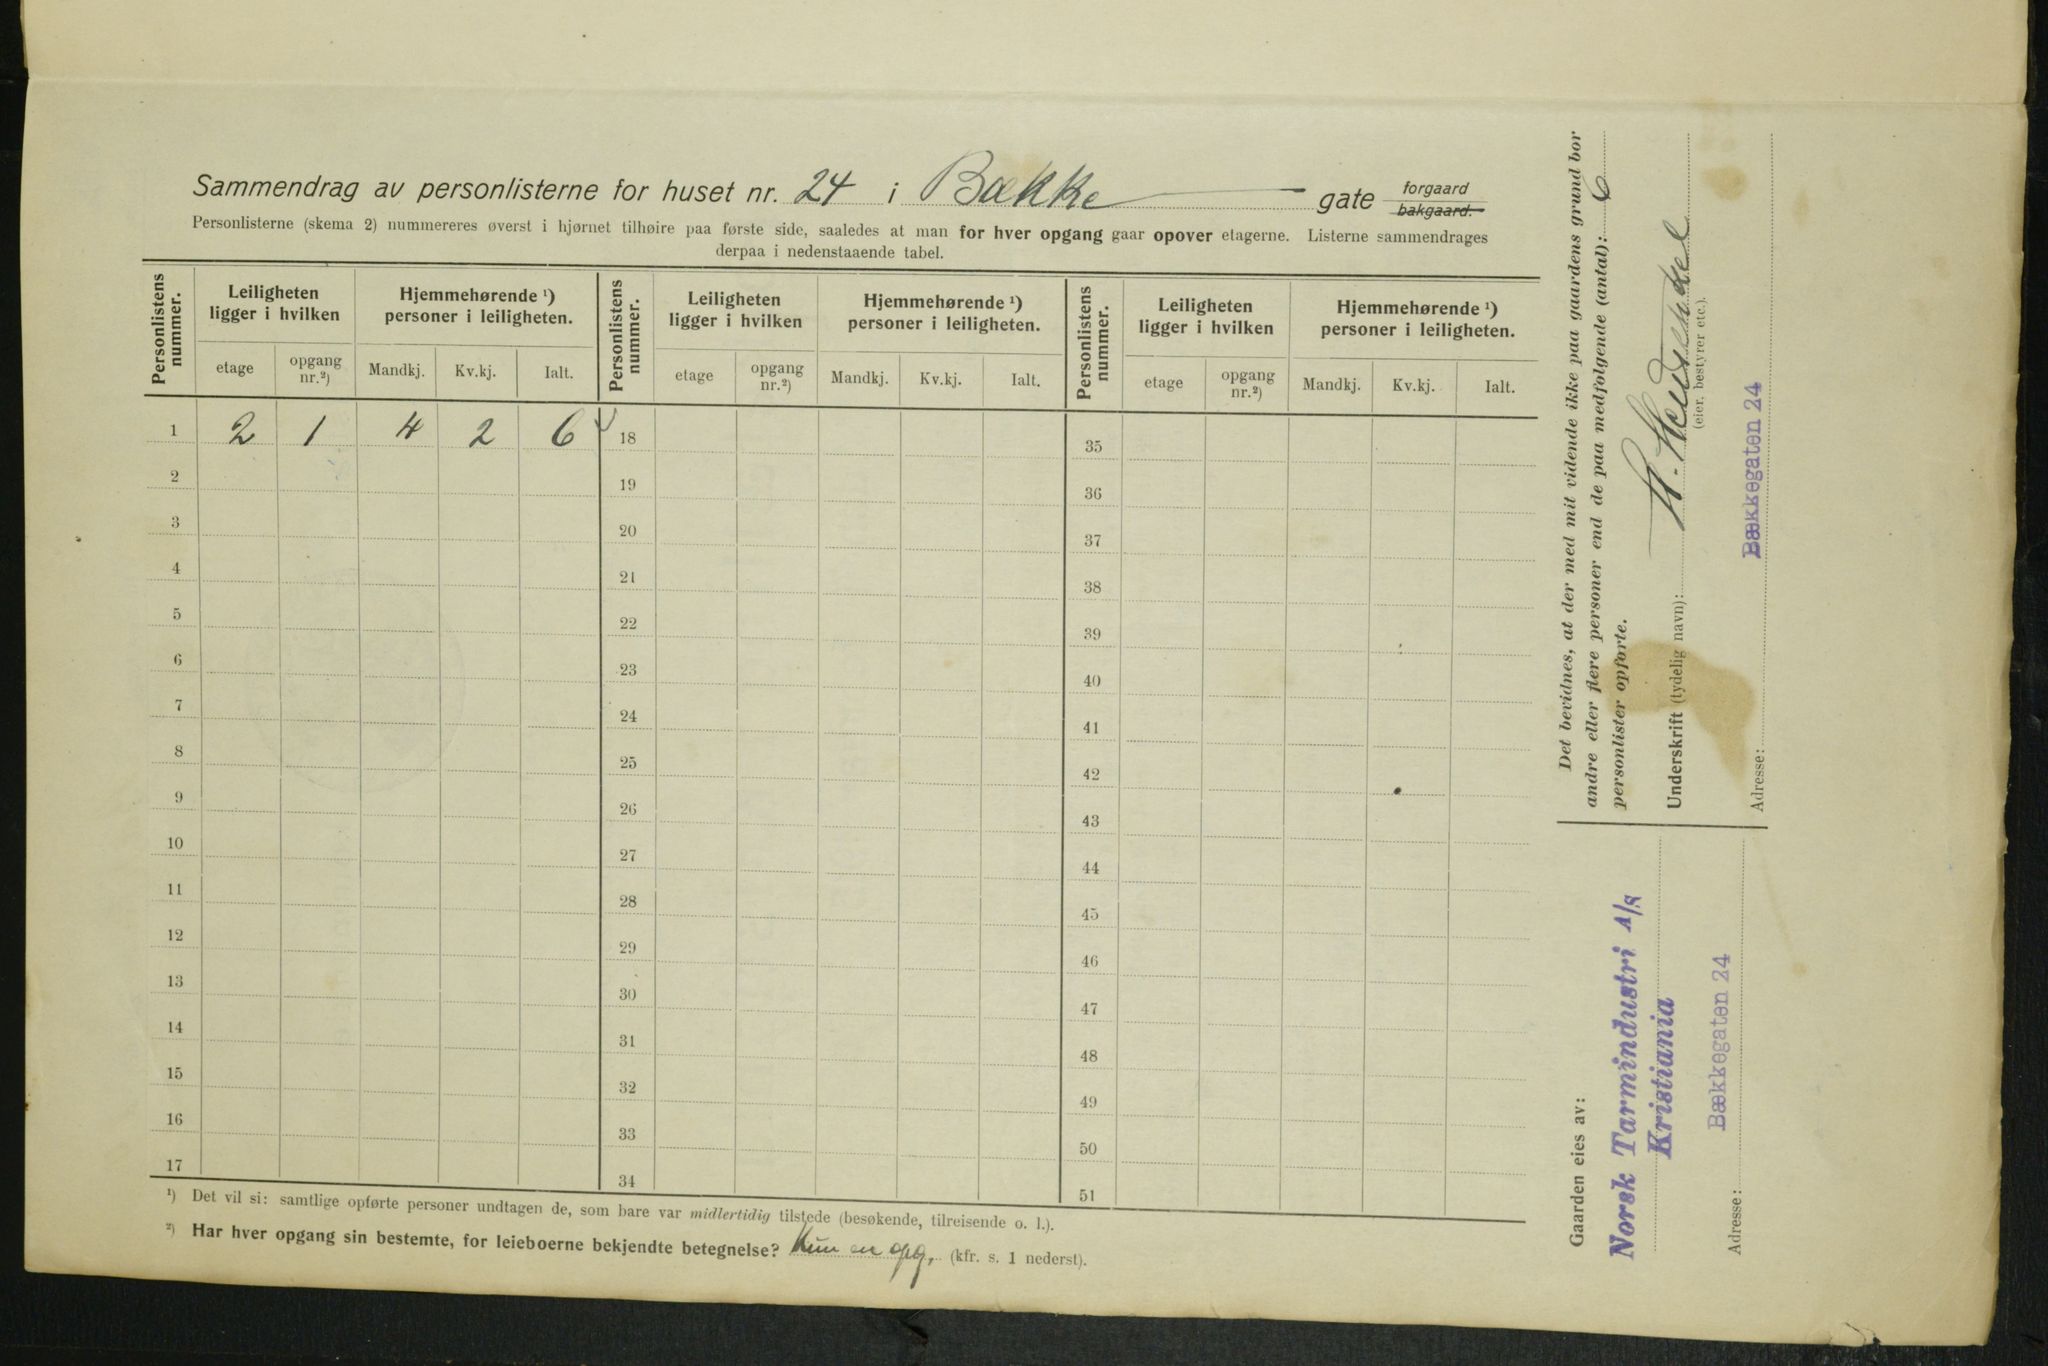 Sammendrag av personlisterne for huset nr. 24 i Bække gate forgaard bakgaard.
Personlisterne (skema 2) nummereres øverst i hjørnet tilhøire paa første side, saaledes at man for hver opgang gaar opover etagerne. Listerne sammendrages
derpaa i nedenstaaende tabel.
Personlistens nummer. Leiligheten ligger i hvilken Hjemmehørende ¹) personer i leiligheten. Personlistens nummer. Leiligheten ligger i hvilken Hjemmehørende ¹) personer i leiligheten. Personlistens nummer. Leiligheten ligger i hvilken Hjemmehørende ¹) personer i leiligheten.
etage opgang nr.²) Mandkj. Kv.kj. Ialt. etage opgang nr.²) Mandkj. Kv.kj. Ialt. etage opgang nr.²) Mandkj. Kv.kj. Ialt.
1 2 1 4 2 6 18 35
2 19 36
3 20 37
4 21 38
5 22 39
6 23 40
7 24 41
8 25 42
9 26 43
10 27 44
11 28 45
12 29 46
13 30 47
14 31 48
15 32 49
16 33 50
17 34 51
¹) Det vil si: samtlige opførte personer undtagen de, som bare var midlertidig tilstede (besøkende, tilreisende o. l.).
²) Har hver opgang sin bestemte, for leieboerne bekjendte betegnelse? Kun en opg. (kfr. s. 1 nederst).
Det bevidnes, at der med mit vidende ikke paa gaardens grund bor
andre eller flere personer end de paa medfølgende (antal): 6
personlister opførte.
Underskrift (tydelig navn):
(eier, bestyrer etc.).
Adresse: Bækkegaten 24
Gaarden eies av:
Norsk Tarmindustri A/S
Kristiania
Adresse: Bækkegaten 24